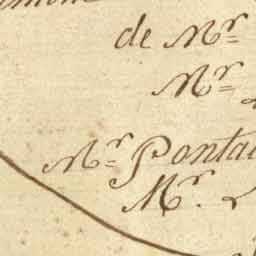 de Mr
Mr
Mr Pontai
Mr.